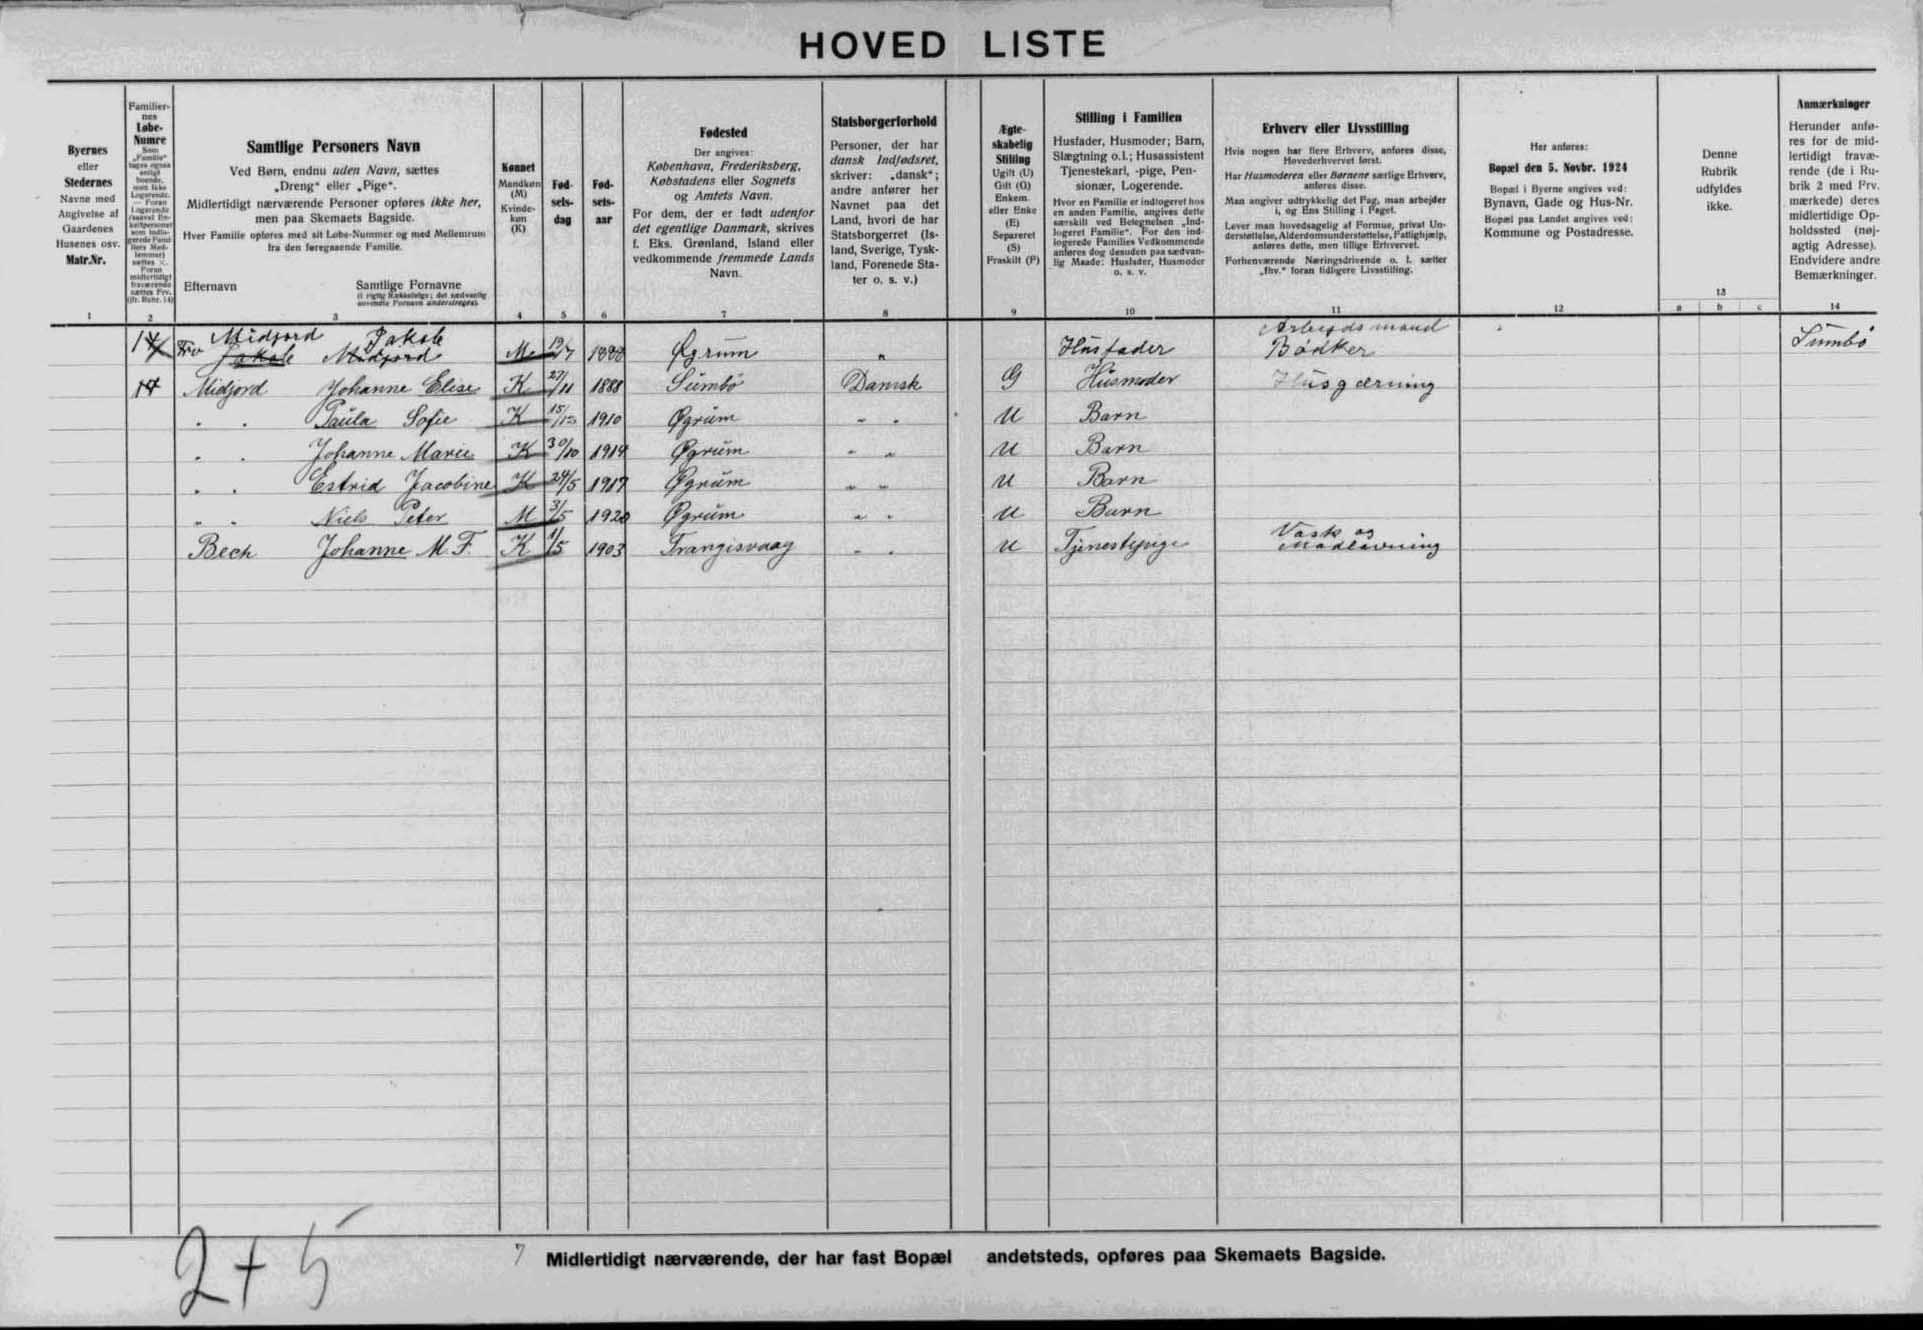 HOVED LISTE
Byernes
eller
Stedernes
Navne med
Angivelse af
Gaardenes
Husenes osv.
Matr.Nr.
1
Familier-
nes
Løbe-
Numre
Som
„Familie“
tages ogsaa
enligt
boende,
men ikke
Logerende.
— Foran
Logerende
(saavel En-
keltpersoner
som indlo-
gerede Fami-
liers Med-
lemmer)
sættes ×.
Foran
midlertidigt
fraværende
sættes Frv.
(jfr. Rubr. 14)
2
Samtlige Personers Navn
Ved Børn, endnu uden Navn, sættes
„Dreng“ eller „Pige“.
Midlertidigt nærværende Personer opføres ikke her,
men paa Skemaets Bagside.
Hver Familie opføres med sit Løbe-Nummer og med Mellemrum
fra den foregaaende Familie.
Efternavn
Samtlige Fornavne
(i rigtig Rækkefølge; det sædvanlig
anvendte Fornavn understreges).
3
Kønnet
Mandkøn
(M)
Kvinde-
køn
(K)
4
Fød-
sels-
dag
5
Fød-
sels-
aar
6
Fødested
Der angives:
København, Frederiksberg,
Købstadens eller Sognets
og Amtets Navn.
For dem, der er født udenfor
det egentlige Danmark, skrives
f. Eks. Grønland, Island eller
vedkommende fremmede Lands
Navn.
7
Statsborgerforhold
Personer, der har
dansk Indfødsret,
skriver: „dansk“;
andre anfører her
Navnet paa det
Land, hvori de har
Statsborgerret (Is-
land, Sverige, Tysk-
land, Forenede Sta-
ter o. s. v.)
8
Ægte-
skabelig
Stilling
Ugift (U)
Gift (G)
Enkem.
eller Enke
(E)
Separeret
(S)
Fraskilt (F)
9
Stilling i Familien
Husfader, Husmoder; Barn,
Slægtning o.l.; Husassistent
Tjenestekarl, -pige, Pen-
sionær, Logerende.
Hvor en Familie er indlogeret hos
en anden Familie, angives dette
særskilt ved Betegnelsen „Ind-
logeret Familie“. For den ind-
logerede Families Vedkommende
anføres dog desuden paa sædvan-
lig Maade: Husfader, Husmoder
o. s. v.
10
Erhverv eller Livsstilling
Hvis nogen har flere Erhverv, anføres disse,
Hovederhvervet først.
Har Husmoderen eller Børnene særlige Erhverv,
anføres disse.
Man angiver udtrykkelig det Fag, man arbejder
i, og Ens Stilling i Faget.
Lever man hovedsagelig af Formue, privat Un-
derstøttelse, Alderdomsunderstøttelse, Fattighjælp,
anføres dette, men tillige Erhvervet.
Forhenværende Næringsdrivende o. l. sætter
„fhv.“ foran tidligere Livsstilling.
11
Her anføres:
Bopæl den 5. Novbr. 1924
Bopæl i Byerne angives ved:
Bynavn, Gade og Hus-Nr.
Bopæl paa Landet angives ved:
Kommune og Postadresse.
12
Denne
Rubrik
udfyldes
ikke.
13
a b c
Anmærkninger
Herunder anfø-
res for de mid-
lertidigt fravæ-
rende (de i Ru-
brik 2 med Frv.
mærkede) deres
midlertidige Op-
holdssted (nøj-
agtig Adresse).
Endvidere andre
Bemærkninger.
14
Midjord Jakob Arbejdsmand
Frv Jakob Midjord M 1888 Øgrum „ Husfader Bødker Sumbø
14 Midjord Johanne Elise K 27/11 1888 Sumbø Dansk G Husmoder Husgærning
„ „ Paula Sofie K 15/12 1910 Øgrum „ „ U Barn
„ „ Johanne Marie K 30/10 1914 Øgrum „ „ U Barn
„ „ Estrid Jacobine K 24/5 1917 Øgrum „ „ U Barn
„ „ Niels Peter M 3/5 1920 Øgrum „ „ U Barn
Bech Johanne M. F. K 1/5 1903 Trangisvaag „ „ U Tjenestepige Vask og
Madlavning
2 + 5
7 Midlertidigt nærværende, der har fast Bopæl andetsteds, opføres paa Skemaets Bagside.